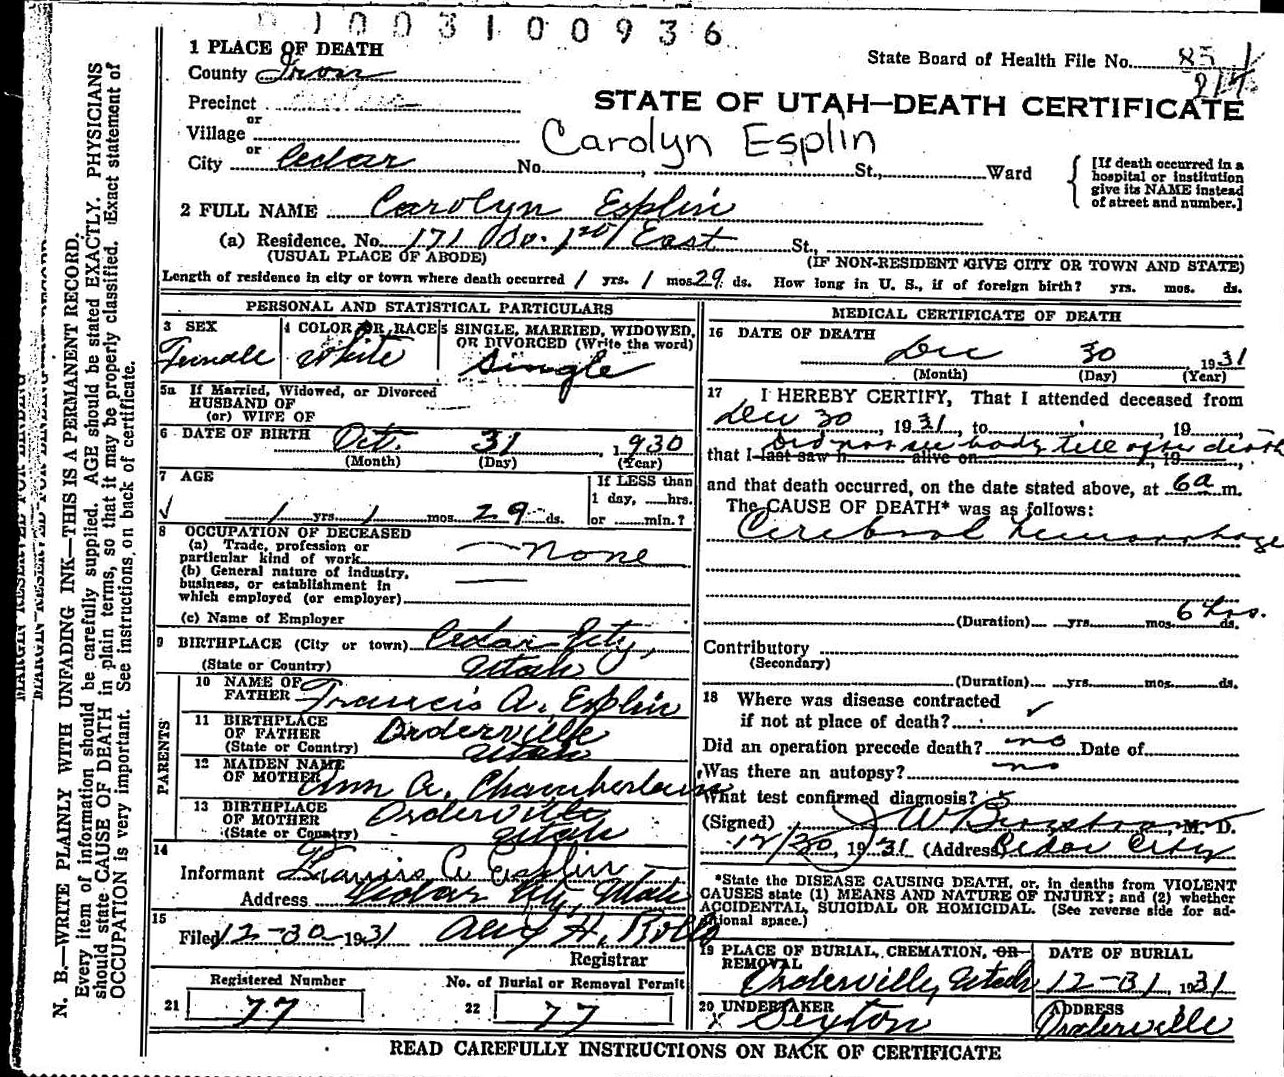 1003100936
1 PLACE OF DEATH
County Iron
State Board of Health File No. 85
Precinct
STATE OF UTAH—DEATH CERTIFICATE
or
Village
Carolyn Esplin
or
City Cedar No. , St., Ward
[If death occurred in a
hospital or institution
give its NAME instead
of street and number.]
2 FULL NAME Carolyn Esplin
(a) Residence. No. 171 So. 1st East St.,
(USUAL PLACE OF ABODE) (IF NON-RESIDENT GIVE CITY OR TOWN AND STATE)
Length of residence in city or town where death occurred 1 yrs. 1 mos 29 ds. How long in U. S., if of foreign birth? yrs. mos. ds.
PERSONAL AND STATISTICAL PARTICULARS
3 SEX
Female
4 COLOR OR RACE
White
5 SINGLE, MARRIED, WIDOWED,
OR DIVORCED (Write the word)
Single
5a If Married, Widowed, or Divorced
HUSBAND OF
(or) WIFE OF
6 DATE OF BIRTH Oct. 31, 1930
(Month) (Day) (Year)
7 AGE
1 yrs. 1 mos. 29 ds.
If LESS than
1 day, hrs.
or min.?
8 OCCUPATION OF DECEASED
(a) Trade, profession or
particular kind of work None
(b) General nature of industry,
business, or establishment in
which employed (or employer)
(c) Name of Employer
9 BIRTHPLACE (City or town) Cedar City,
(State or Country) Utah
PARENTS
10 NAME OF
FATHER Francis A. Esplin
11 BIRTHPLACE
OF FATHER Orderville
(State or Country) Utah
12 MAIDEN NAME
OF MOTHER Ann A. Chamberlain
13 BIRTHPLACE
OF MOTHER Orderville
(State or Country) Utah
14
Informant Francis A. Esplin
Address Cedar City, Utah
15
Filed 12-30 1931
Registrar
Registered Number
21 77
No. of Burial or Removal Permit
22 77
MEDICAL CERTIFICATE OF DEATH
16 DATE OF DEATH
Dec 30 1931
(Month) (Day) (Year)
17 I HEREBY CERTIFY, That I attended deceased from
Dec 30, 1931, to , 19
Did not see body till after death
that I last saw h alive on , 19 ,
and that death occurred, on the date stated above, at 6a m.
The CAUSE OF DEATH* was as follows:
Cerebral hemorrhage
6 hrs.
(Duration) yrs. mos. ds.
Contributory
(Secondary)
(Duration) yrs. mos. ds.
18 Where was disease contracted
if not at place of death?
Did an operation precede death? no Date of
Was there an autopsy? no
What test confirmed diagnosis?
(Signed) J W M. D.
12/30, 1931 (Address) Cedar City
*State the DISEASE CAUSING DEATH, or, in deaths from VIOLENT
CAUSES state (1) MEANS AND NATURE OF INJURY; and (2) whether
ACCIDENTAL, SUICIDAL OR HOMICIDAL. (See reverse side for ad-
ditional space.)
19 PLACE OF BURIAL, CREMATION, OR
REMOVAL
Orderville, Utah
DATE OF BURIAL
12-31, 1931
20 UNDERTAKER
Sexton
ADDRESS
Orderville
READ CAREFULLY INSTRUCTIONS ON BACK OF CERTIFICATE
MARGIN RESERVED FOR BINDING
N. B.—WRITE PLAINLY WITH UNFADING INK—THIS IS A PERMANENT RECORD.
Every item of information should be carefully supplied. AGE should be stated EXACTLY. PHYSICIANS
should state CAUSE OF DEATH in plain terms, so that it may be properly classified. Exact statement of
OCCUPATION is very important. See instructions on back of certificate.